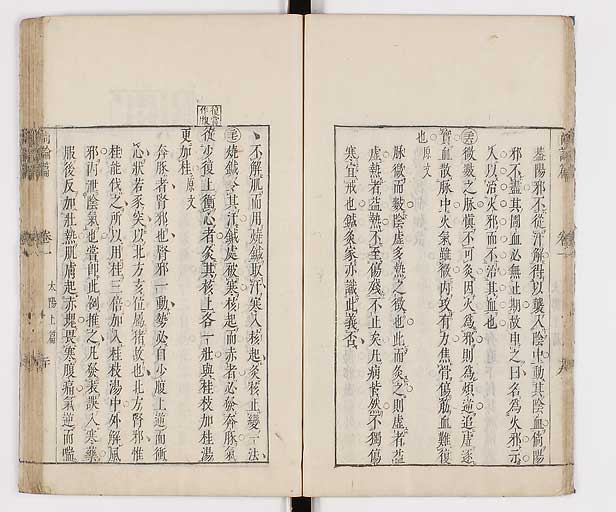 蓋陽邪不從汗解得以襲入陰中動其陰血倘陽
邪不盡其圊血必無止期故申之曰名為火邪示
人以治火邪而不治其血也
微數之脉慎不可灸因火為邪則為煩逆追虛逐
實血散脉中火氣雖微內攻有力焦骨傷筋血難復
也原文
脉微而數陰虛多熱之徵也此而灸之則虛者益
虛熱者益熱不至傷殘不止矣凡病皆然不獨傷
寒宜戒也鍼灸家亦識此義否
尚論篇
卷一
不解肌而用燒鍼取汗寒入核起灸核止變一法
燒鍼令其汗鍼處被寒核起而赤者必發奔豚氣
從少腹上衝心者灸其核上各一壯與桂枝加桂湯
更加桂原文
奔豚者腎邪也腎邪一動勢必自少腹上逆而衝
心狀若豕突以北方亥位屬猪故也北方腎邪惟
桂能伐之所以用桂三倍加入桂枝湯中外解風
邪內泄陰氣也嘗卽此例推之凡發表誤入寒藥
服後反加壯熱肌膚起赤塊畏寒腹痛氣逆而喘
尚論篇
卷一
太陽上篇